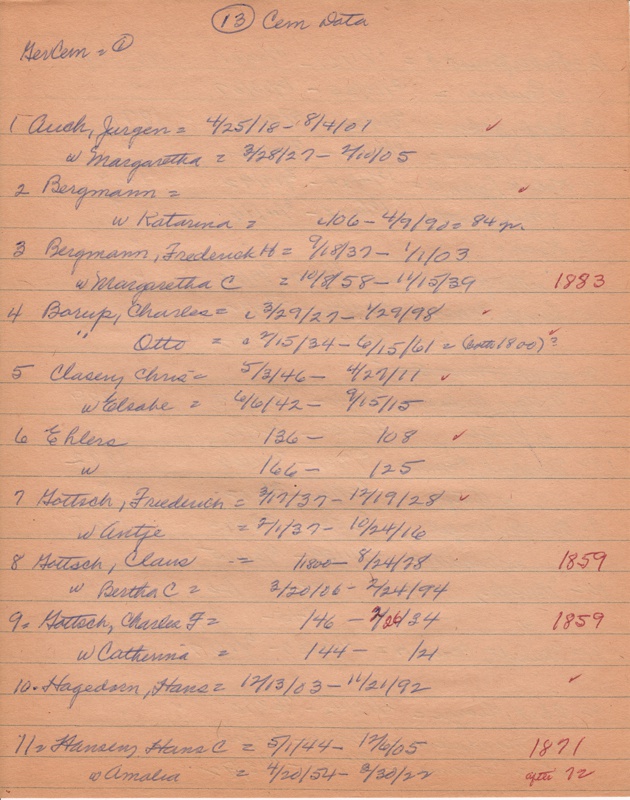 13 Cem Data
GerCem = 1
1 Auch, Jurgen = 4/25/18 - 8/4/01 ✓
w Margaretha = 3/28/27 - 2/10/05
2 Bergmann = ✓
w Katarina = c/06 - 4/9/90 = 84 yr.
3 Bergmann, Frederick H = 9/18/37 - 1/1/03
w Margaretha C = 10/8/58 - 11/15/39 1883
4 Borup, Charles = c 3/29/27 - 1/29/98 ✓
" Otto = c 2/15/34 - 6/15/61 = (both 1800)? ✓
5 Clasen, Chris = 5/3/46 - 4/27/11 ✓
w Elsabe = 6/6/42 - 9/15/15
6 Ehlers 136 - 108 ✓
w 166 - 125
7 Gottsch, Friederich = 3/17/37 - 12/19/28 ✓
w Antje = 2/1/37 - 10/24/16
8 Gottsch, Claus = /1800 - 8/24/78 1859
w Bertha C = 3/20/06 - 2/24/94
9 = Gottsch, Charles F = 146 - 2/26/34 1859
w Catherina = 144 - 121
10. Hagedorn, Hans = 12/13/03 - 11/21/92 ✓
11 = Hansen, Hans C = 5/1/44 - 12/6/05 1871
w Amalia = 4/20/54 - /30/22 after 72